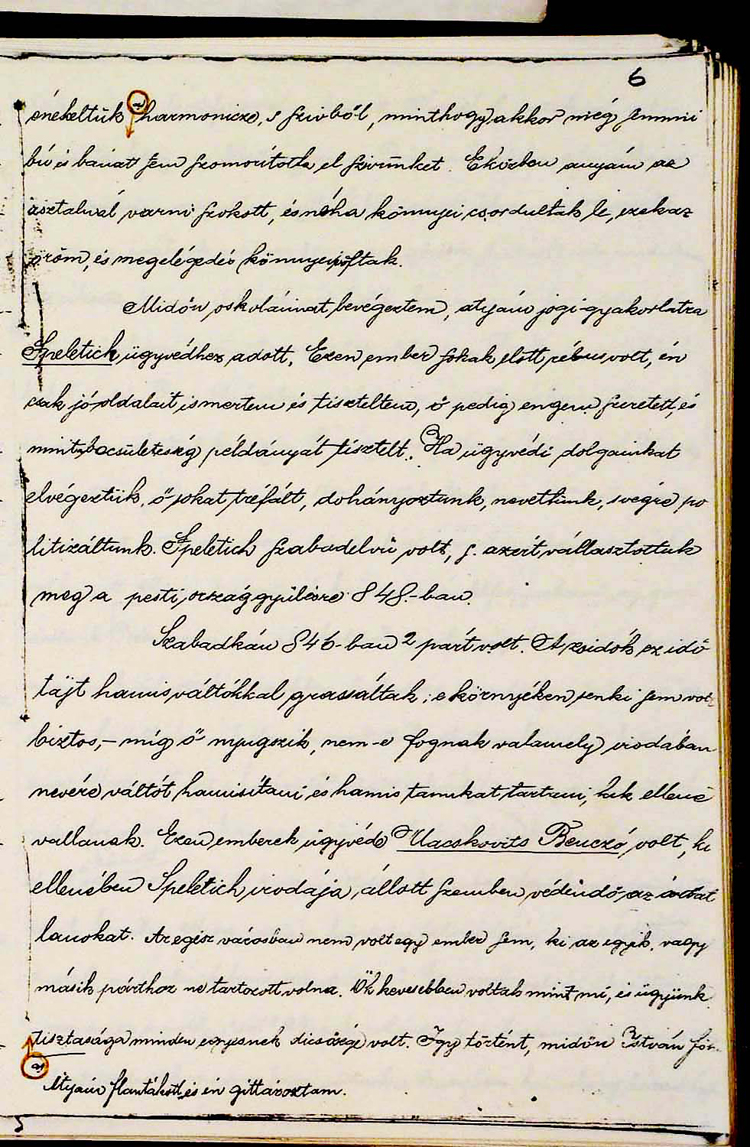 6
énekeltük a) harmonicze, s szivből, minthogy akkor még semmi
bú és bánat sem szomorította el szivünket. Eközben anyám az
asztalnál varrni szokott, és néha könnyei csordultak le, ezek az
öröm, és megelégedés könnyei voltak.
Midőn oskoláimat bevégeztem, atyám jogi gyakorlatra
Speletich ügyvédhez adott. Ezen ember sokak előtt rébus volt, én
csak jó oldalait ismertem és tiszteltem, ő pedig engem szeretett, és
mint becsületesség példányát tisztelt. Ha ügyvédi dolgainkat
elvégeztük, ő sokat tréfált, dohányoztunk, nevettünk, s végre po
litizáltunk. Speletich szabadelvü volt, s. azért választottuk
meg a pesti országgyülésre 848.-ban.
Szabadkán 846-ban 2 párt volt. A zsidók ez idő
tájt hamis váltókkal grassáltak; e környéken senki sem volt
biztos, – míg ő nyugszik, nem-e fognak valamely irodában
nevére váltót hamisítani és hamis tanukat tartani, kik ellene
vallanak. Ezen emberek ügyvéde Vacskovits Benczó volt, ki
ellenében Speletich irodája állott szemben védendő az ártat
lanokat. Az egész városban nem volt egy ember sem, ki az egyik, vagy
másik párthoz ne tartozott volna. Ők kevesebben voltak mint mi, és ügyünk
tisztasága minden egyesnek dicsősége volt. Igy történt, midőn István
a) Atyám flautázott és én gittároztam.